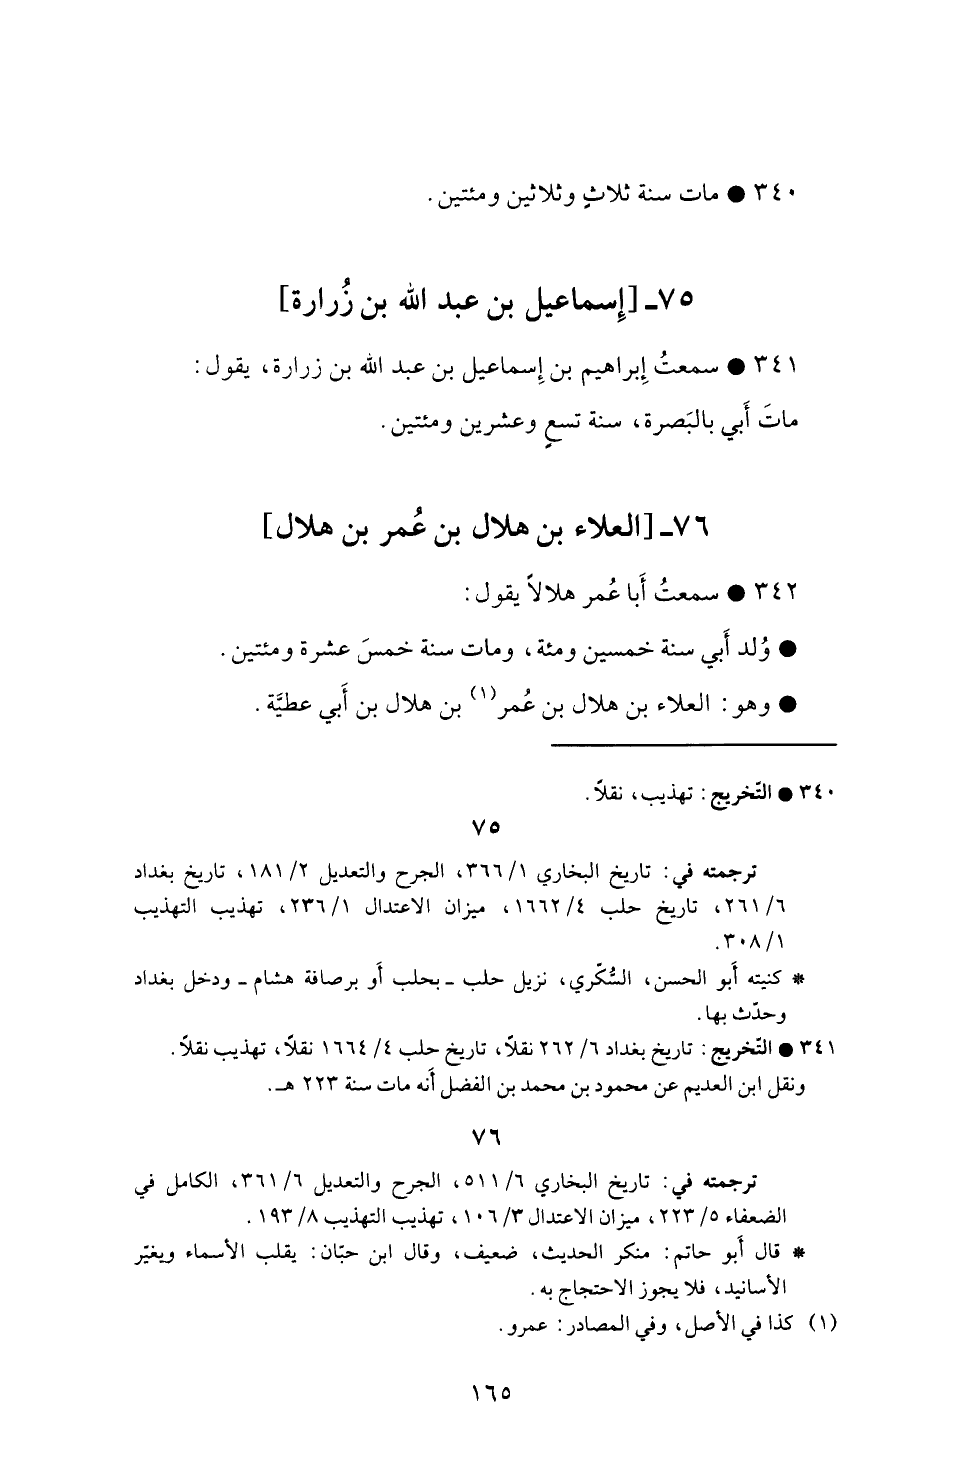 ٣٤٠ ● مات سنة ثلاثٍ وثلاثين ومئتين .
٧٥ـ [إِسماعيل بن عبد الله بن زُرارة]
٣٤١ ● سمعتُ إِبراهيم بن إِسماعيل بن عبد الله بن زرارة، يقول :
ماتَ أَبي بالبَصرة، سنة تسعٍ وعشرين ومئتين .
٧٦ـ [العلاء بن هلال بن عُمر بن هلال]
٣٤٢ ● سمعتُ أَبا عُمر هلالاً يقول :
● وُلد أَبي سنة خمسين ومئة، ومات سنة خمسَ عشرة ومئتين .
● وهو : العلاء بن هلال بن عُمر(١) بن هلال بن أَبي عطيَّة .
٣٤٠ ● التّخريج : تهذيب، نقلاً .
٧٥
ترجمته في : تاريخ البخاري ١/ ٣٦٦، الجرح والتعديل ٢/ ١٨١، تاريخ بغداد
٦/ ٢٦١، تاريخ حلب ٤/ ١٦٦٢، ميزان الاعتدال ١/ ٢٣٦، تهذيب التهذيب
١/ ٣٠٨.
* كنيته أَبو الحسن، السُّكّري، نزيل حلب ـ بحلب أَو برصافة هشام ـ ودخل بغداد
وحدّث بها .
٣٤١ ● التّخريج : تاريخ بغداد ٦/ ٢٦٢ نقلاً، تاريخ حلب ٤/ ١٦٦٤ نقلاً، تهذيب نقلاً .
ونقل ابن العديم عن محمود بن محمد بن الفضل أَنه مات سنة ٢٢٣ هـ .
٧٦
ترجمته في : تاريخ البخاري ٦/ ٥١١، الجرح والتعديل ٦/ ٣٦١، الكامل في
الضعفاء ٥/ ٢٢٣، ميزان الاعتدال ٣/ ١٠٦، تهذيب التهذيب ٨/ ١٩٣ .
* قال أَبو حاتم : منكر الحديث، ضعيف، وقال ابن حبّان : يقلب الأسماء ويغيّر
الأسانيد، فلا يجوز الاحتجاج به .
(١) كذا في الأصل، وفي المصادر : عمرو .
١٦٥